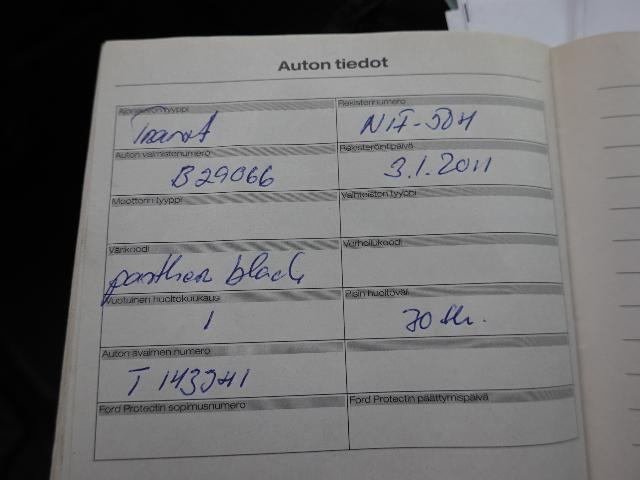 Auton tiedot
Ajoneuvon tyyppi
Transit
Rekisterinumero
Auton valmistenumero
B29066
Rekisteröintipäivä
3.1.2011
Moottorin tyyppi
Vaihteiston tyyppi
Värikoodi
panther black
Verhoilukoodi
Vuotuinen huoltokuukausi
1
Pisin huoltoväli
Auton avaimen numero
Ford Protectin sopimusnumero
Ford Protectin päättymispäivä